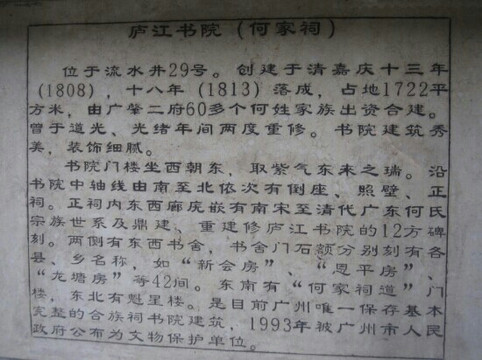 庐江书院（何家祠）
位于流水井29号。创建于清嘉庆十三年
(1808)，十八年（1813）落成，占地1722平
方米，由广肇二府60多个何姓家族出资合建。
曾于道光、光绪年间两度重修。书院建筑秀
美，装饰细腻。
书院门楼坐西朝东，取紫气东来之瑞。沿
书院中轴线由南至北依次有倒座、照壁、正
祠。正祠内东西廊庑嵌有南宋至清代广东何氏
宗族世系及鼎建、重建修庐江书院的12方碑
刻。两侧有东西书舍，书舍门石额分别刻有各
县、乡名称，如“新会房”、“恩平房”、
“龙塘房”等42间。东南有“何家祠道”门
楼，东北有魁星楼。是目前广州唯一保存基本
完整的合族祠书院建筑，1993年被广州市人民
政府公布为文物保护单位。